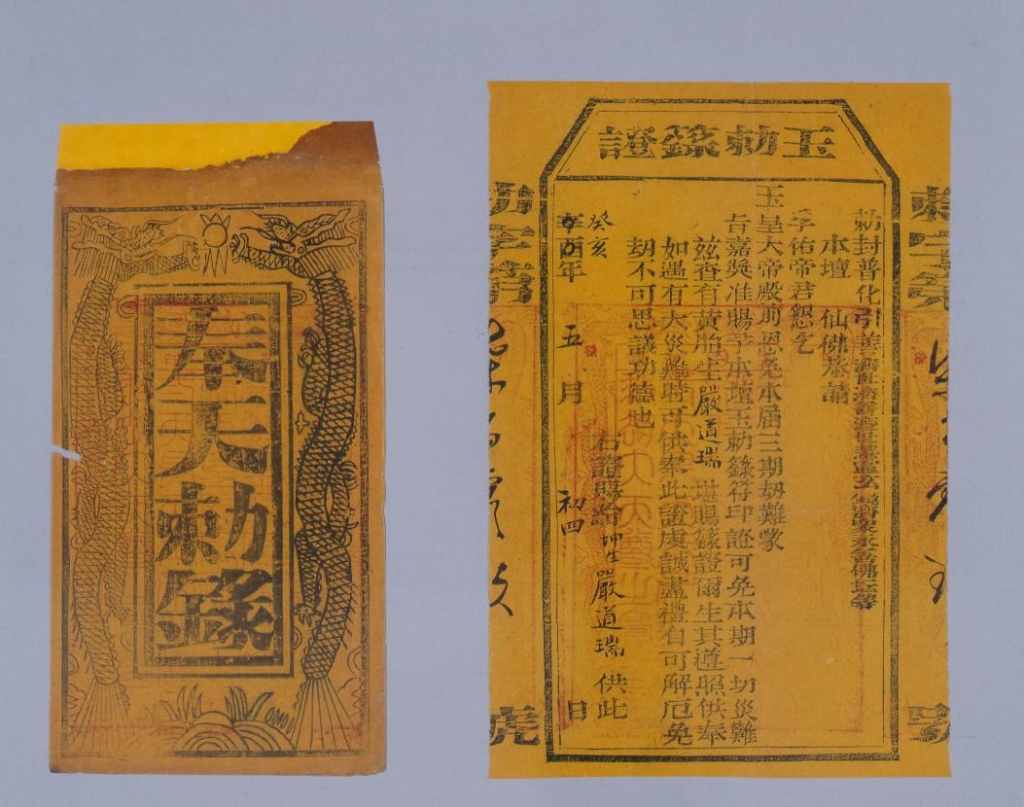 奉天勅錄
玉勅錄證
勅封普化引善
本壇 仙佛恭請
孚佑帝君懇乞
玉皇大帝殿前恩免本届三期刼難蒙
旨嘉獎准賜本壇玉勅錄符印證可免本期一切災難
茲查有黃胎生嚴道瑞堪賜錄證爾生其遵照供奉
如遇有大災難時可供奉此證虔誠盡禮自可解厄免
刼不可思議功德也
右證賜給坤生嚴道瑞供此
癸亥年 五月 初四日
勅字第
號